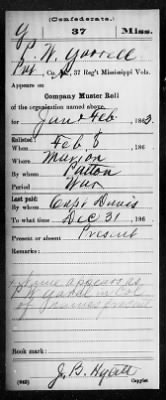 (Confederate.)
G 37 Miss.
P. W. Yarrell
Pvt, Co. , 37 Reg't Mississippi Vols.
Appears on
Company Muster Roll
of the organization named above,
for Jan & Feb, 1863.
Enlisted:
When Feb. 8, 186
Where Marion
By whom Patton
Period War
Last paid:
By whom Capt Davis
To what time Dec 31, 186
Present or absent Present
Remarks:
Name appears as
in Col
of names present
Book mark:
J. B. Hyatt
(642) Copyist.